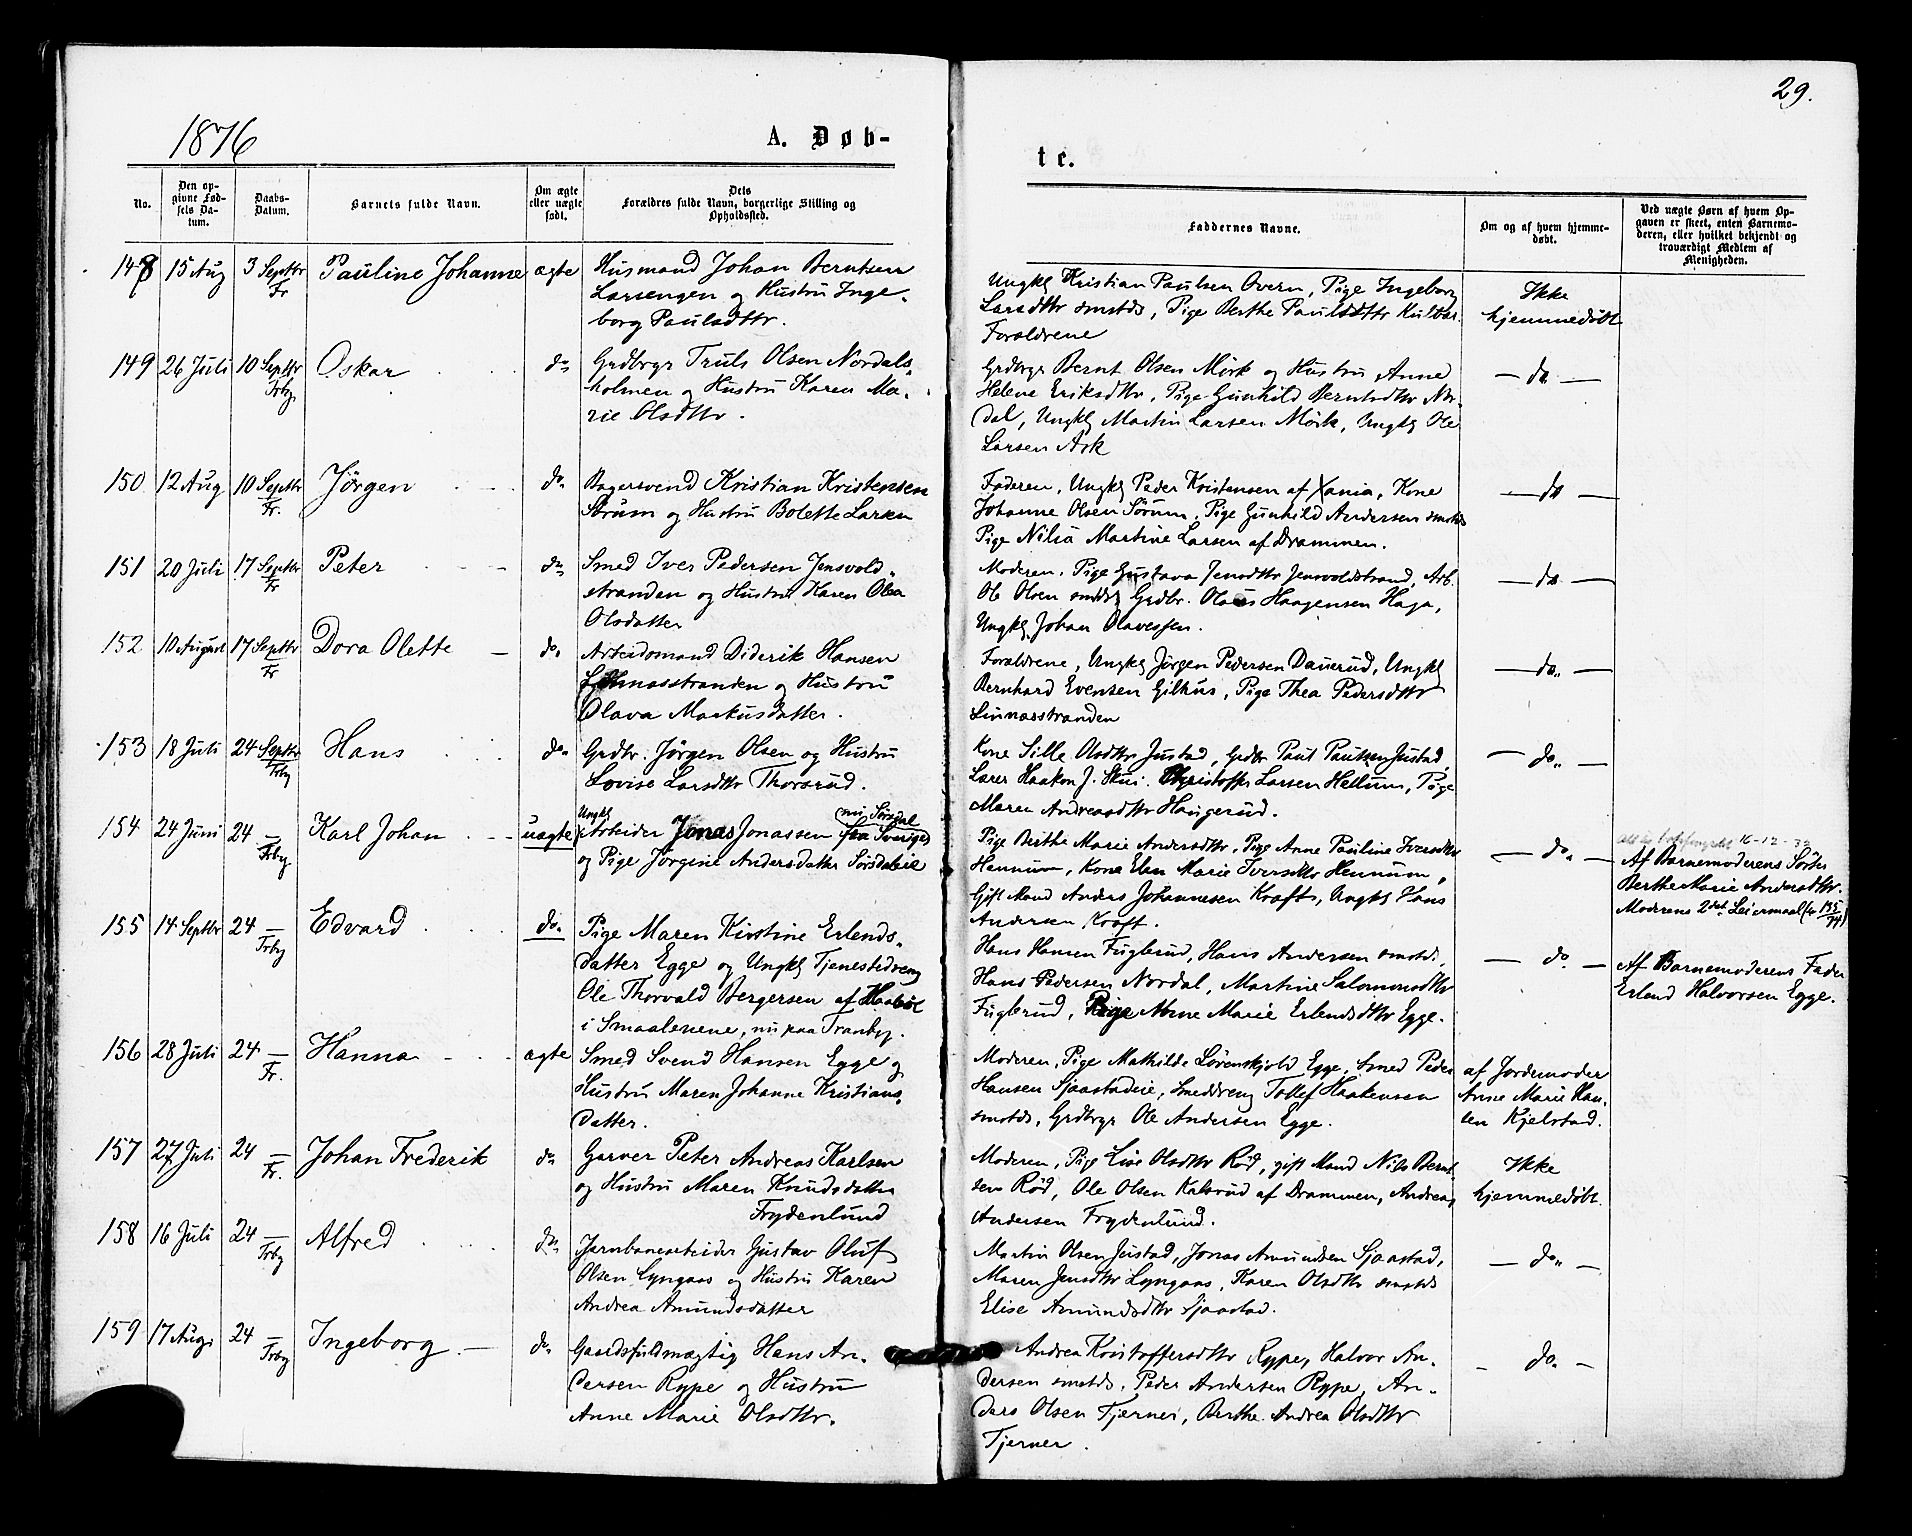 1876
A. Døb-
29.
te.
No.
Den op-
givne Fød-
sels Da-
tum.
Daabs-
Datum.
Barnets fulde Navn.
Om ægte
eller uægte
født.
Dets
Forældres fulde Navn, borgerlige Stilling og
Opholdssted.
Faddernes Navne.
Om og af hvem hjemme-
døbt.
Ved uægte Børn af hvem Op-
gaven er skeet, enten Barnemo-
deren, eller hvilket bekjendt og
troværdigt Medlem af
Menigheden.
148 15 Aug 3 Septbr Fr Pauline Johanne ægte Husmand Johan Berntsen
Larsengen og Hustru Inge-
borg Paulsdttr.
Ungkl Kristian Paulsen Overn, Pige Ingeborg
Larsdttr smstds, Pige Berthe Paulsdttr
Forældrene
Ikke
hjemmedøbt
149 26 Juli 10 Septbr Trby Oskar do Grdbrgr Truls Olsen Nordals-
holmen og Hustru Karen Ma-
rie Olsdttr.
Grdbrgr Bernt Olsen Mörk og Hustru Anne
Helene Eriksdttr, Pige Gunhild Berntsdttr Nor-
dal, Ungkl Martin Larsen Mörk, Ungkl Ole
Larsen Ask
— do —
150 12 Aug 10 Septbr Fr. Jörgen do Bagersvend Kristian Kristensen
Sörum og Hustru Bolette Larsen
Faderen, Ungkl Peder Kristensen af Xania, Kone
Johanne Olsen Sörum, Pige Gunhild Andersen smstds
Pige Nilia Martine Larsen af Drammen.
— do —
151 20 Juli 17 Septbr Fr Peter do Smed Iver Pedersen Jensvold-
stranden og Hustru Karen Olea
Olsdatter
Moderen, Pige Gustava Jensdttr Jensvoldstrand, Arb.
Ole Olsen smstds Grdbr. Olaus Haagensen Haga,
Ungkl Johan Olavessen.
— do —
152 10 August 17 Septbr Fr Dora Olette — do. Arbeidsmand Diderik Hansen
Linnæsstranden og Hustru
Olava Markusdatter.
Forældrene, Ungkl Jörgen Pedersen Dauerud, Ungkl
Bernhard Evensen Gilhus, Pige Thea Pedersdttr
Linnæsstranden
— do. —
153 18 Juli 24 Septbr Trby Hans do. Grdbr. Jörgen Olsen og Hustru
Lovise Larsdttr Thorsrud.
Kone Sille Olsdttr Justad, Grdbr Paul Paulsen Justad,
Lærer Haakon J. Skui. Christoffer Larsen Hellum, Pige
Maren Andreasdttr Haugerud.
— do. —
154 24 Juni 24 — Trby Karl Johan uægte Ungkl Arbeider Jonas Jonassen fra Sverige, nu Sörsdal
og Pige Jörgine Andersdatter Sörsdaleie
Pige Berthe Marie Andersdttr, Pige Anne Pauline Iversdttr
Hennum, Kone Elen Marie Iversdttr Hennum,
Gift Mand Anders Johannesen Kraft, Ungkl Hans
Andersen Kraft.
— do. —
16-12-32
Af Barnemoderens Söster
Berthe Marie Andersdttr.
Moderens 2det Leiermaal
155 14 Septbr 24 — Trby Edvard do. Pige Maren Kirstine Erlends-
datter Egge og Ungkl Tjenestedreng
Ole Thorvald Bergersen af Haaböl
i Smaalenene, nu paa Tranby.
Hans Hansen Fuglerud, Hans Andersen smstds,
Hans Pedersen Nordal, Martine Salomonsdttr
Fuglerud, Pige Anne Marie Erlendsdttr Egge.
— do. —
Af Barnemoderens Fader
Erlend Halvorsen Egge.
156 28 Juli 24 — Fr. Hanna ægte Smed Svend Hansen Egge og
Hustru Maren Johanne Kristians-
datter.
Moderen, Pige Mathilde Lörenskjold Egge, Smed Peder
Hansen Sjaastadeie, Smeddreng Tollef Haakensen
smstds, Grdbrgr Ole Andersen Egge.
af Jordemoder
Anne Marie Han-
sen Kjelstad.
157 27 Juli 24 — Fr. Johan Frederik do Garver Peter Andreas Karlsen
og Hustru Maren Knudsdatter
Frydenlund
Moderen, Pige Lise Olsdttr Röd, gift Mand Nils Bernt-
sen Röd, Ole Olsen Kalsrud af Drammen, Andreas
Andersen Frydenlund.
Ikke
hjemmedöbt.
158 16 Juli 24 — Trby Alfred do. Jernbanearbeider Gustav Oluf
Olsen Lyngaas og Hustru Karen
Andrea Amundsdatter
Martin Olsen Justad, Jonas Amundsen Sjaastad,
Maren Jensdttr Lyngaas, Karen Olsdttr smstds
Elise Amundsdttr Sjaastad.
— do. —
159 17 Aug. 24 — Trby Ingeborg. — do. Gaardsfuldmægtig Hans An-
dersen Rype og Hustru
Anne Marie Olsdttr.
Andrea Kristoffersdttr Rype, Halvor An-
dersen smstds, Peder Andersen Rype, An-
ders Olsen Tjerner, Berthe Andrea Olsdttr
Tjerner.
— do. —